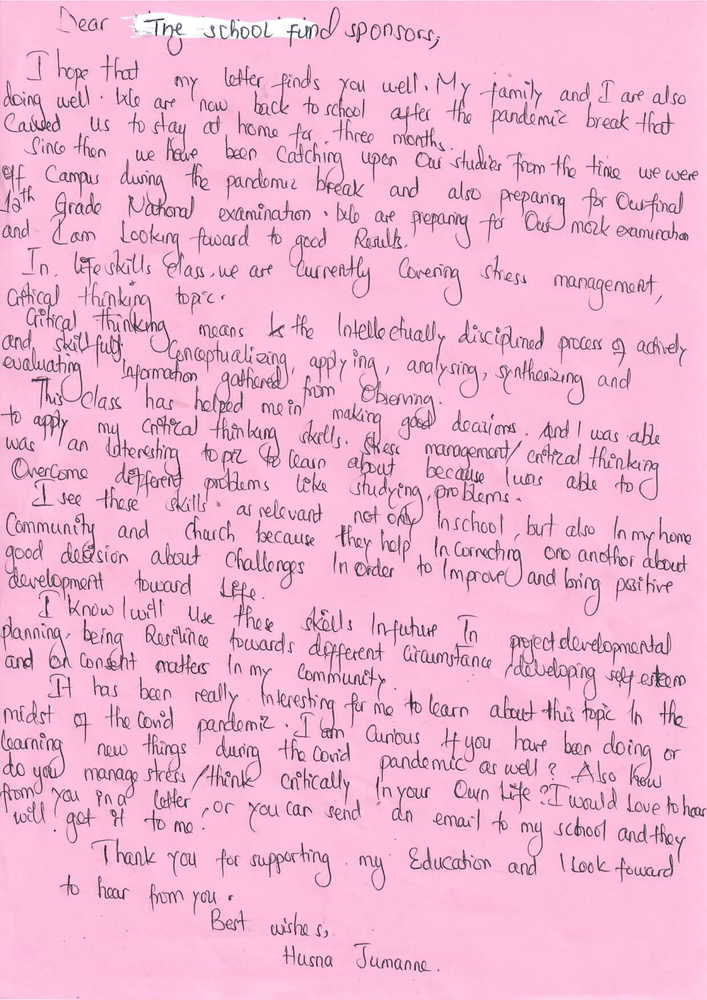 Dear The school Fund sponsors,
I hope that my letter finds you well. My family and I are also
doing well. We are now back to school after the pandemic break that
Caused us to stay at home for three months.
Since then we have been Catching upon Our studies from the time we were
off Campus during the pandemic break and also preparing for Our final
12th Grade National examination. We are preparing for Our mock examination
and I am Looking foward to good Results.
In life skills class, we are Currently Covering stress management,
Critical thinking topic.
Critical thinking means is the Intellectually disciplined process of actively
and skilfully Conceptualizing, applying, analysing, synthesizing and
evaluating Information gathered from Observing.
This Class has helped me in making good decisions. And I was able
to apply my critical thinking skills. Stress management/critical thinking
was an Interesting topic to learn about because I was able to
Overcome different problems like studying problems.
I see these skills as relevant not only In school, but also In my home
Community and church because they help In correcting one another about
good decision about challenges In order to Improve and bring positive
development toward Life.
I Know I will Use these skills In future In project developmental
planning, being Resilince towards different Circumstance, developing self esteem
and on Consent matters In my Community.
It has been really Interesting for me to learn about this topic In the
midst of the covid pandemic. I am Curious If you have been doing or
learning new things during the Covid pandemic as well? Also how
do you manage stress/think critically In your Own Life? I would Love to hear
from you in a letter, or you can send an email to my school and they
will get it to me.
Thank you for supporting my Education and I Look foward
to hear from you.
Best wishes,
Husna Jumanne.